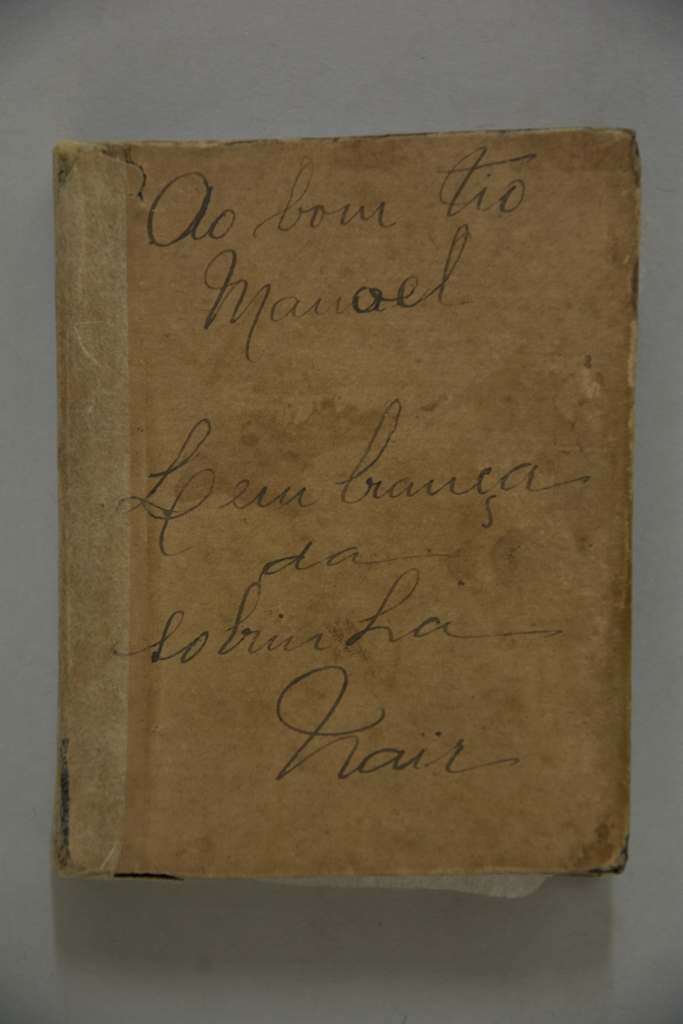 Ao bom tio
Manoel
Lembrança
da
sobrinha
Nair